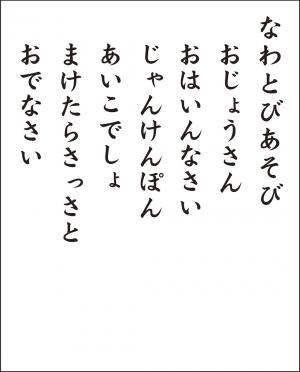 なわとびあそび
おじょうさん
おはいんなさい
じゃんけんぽん
あいこでしょ
まけたらさっさと
おでなさい